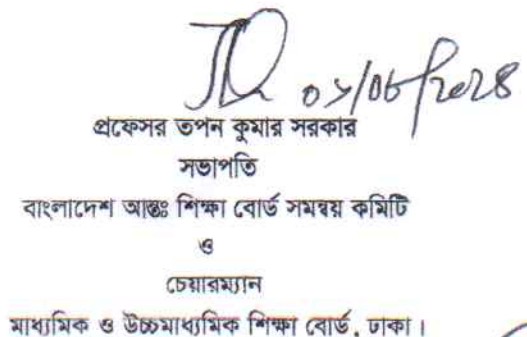 ০১/০৬/২০২৪
প্রফেসর তপন কুমার সরকার
সভাপতি
বাংলাদেশ আন্তঃ শিক্ষা বোর্ড সমন্বয় কমিটি
ও
চেয়ারম্যান
মাধ্যমিক ও উচ্চমাধ্যমিক শিক্ষা বোর্ড, ঢাকা।